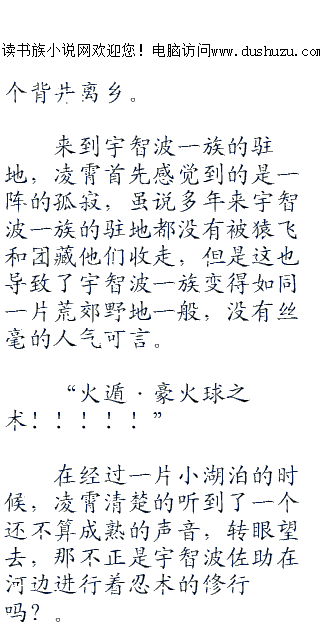 读书族小说网欢迎您！电脑访问www.dushuzu.com
个背井离乡。
来到宇智波一族的驻
地，凌霄首先感觉到的是一
阵的孤寂，虽说多年来宇智
波一族的驻地都没有被猿飞
和团藏他们收走，但是这也
导致了宇智波一族变得如同
一片荒郊野地一般，没有丝
毫的人气可言。
“火遁·豪火球之
术！！！！！”
在经过一片小湖泊的时
候，凌霄清楚的听到了一个
还不算成熟的声音，转眼望
去，那不正是宇智波佐助在
河边进行着忍术的修行
吗？。